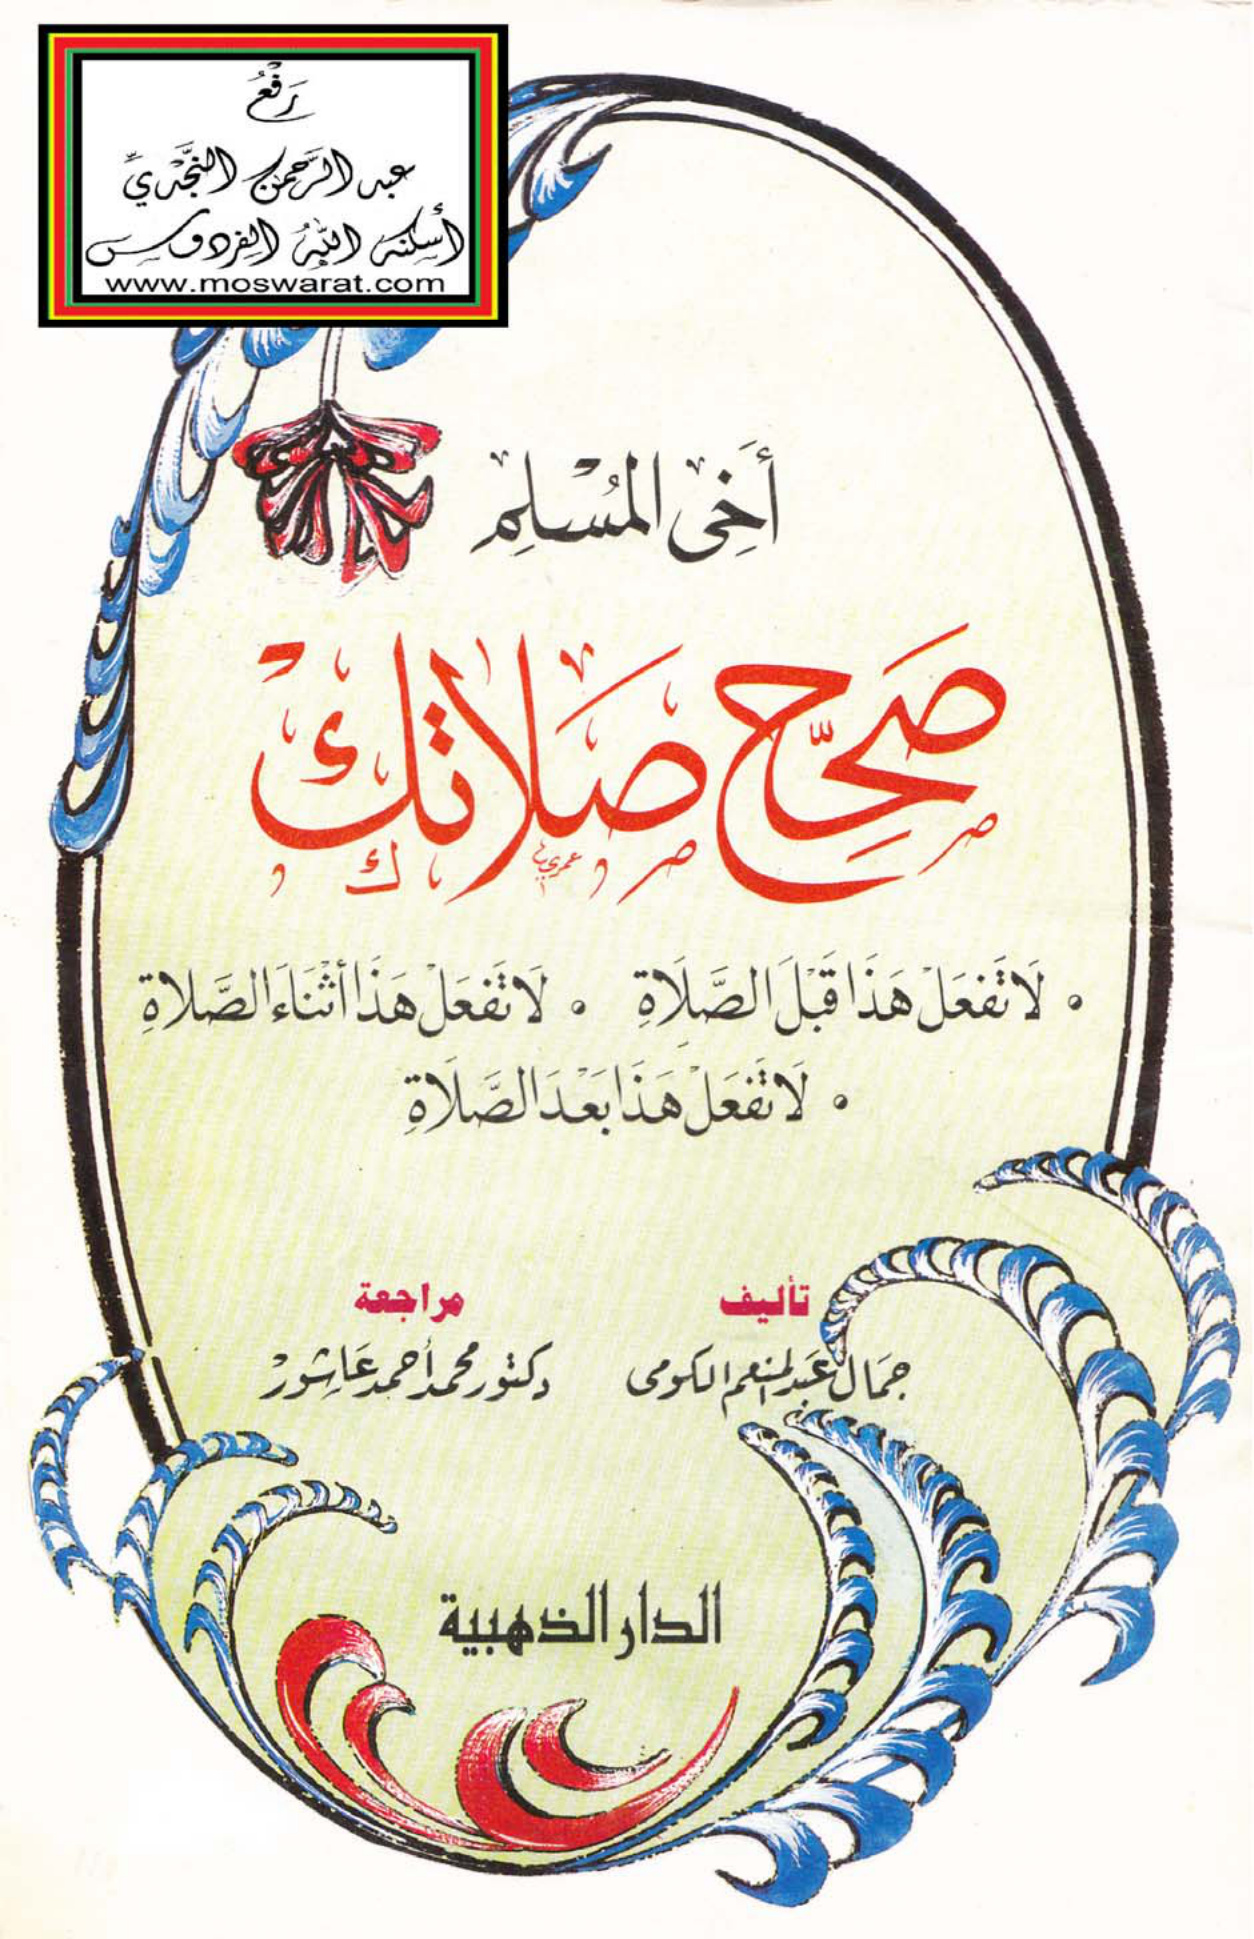 رَفْعُ
عبد الرَّحْمن النَّجْدِيِّ
أَسْكَنَهُ اللهُ الفِرْدَوْس
www.moswarat.com
أَخِى المُسْلِم
صَحِّح صَلاتكْ
• لَا تَفعَلْ هَذَا قَبْلَ الصَّلَاةِ • لَا تَفعَلْ هَذَا أثْنَاءَ الصَّلَاةِ
• لَا تَفعَلْ هَذَا بَعْدَ الصَّلَاةِ
تأليف مراجعة
جمَال عَبد المنعم الكومى دكتور محمد أحمد عَاشورْ
الدار الذهبية